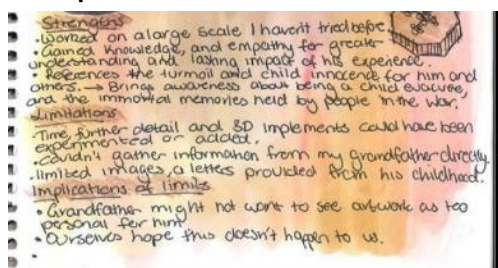 Strengths
• Worked on a large scale I haven't tried before.
• Gained knowledge, and empathy for greater
understanding and lasting impact of his experience.
• References the turmoil and child innocence for him and
others. → Brings awareness about being a child evacuee,
and the immortal memories held by people in the war.
Limitations
Time, further detail and 3D implements could have been
experimented or added.
• Couldn't gather information from my grandfather directly.
• limited images, a letters provided from his childhood.
Implications of limits
• Grandfather might not want to see artwork as too
personal for him
• Ourselves hope this doesn't happen to us.
•